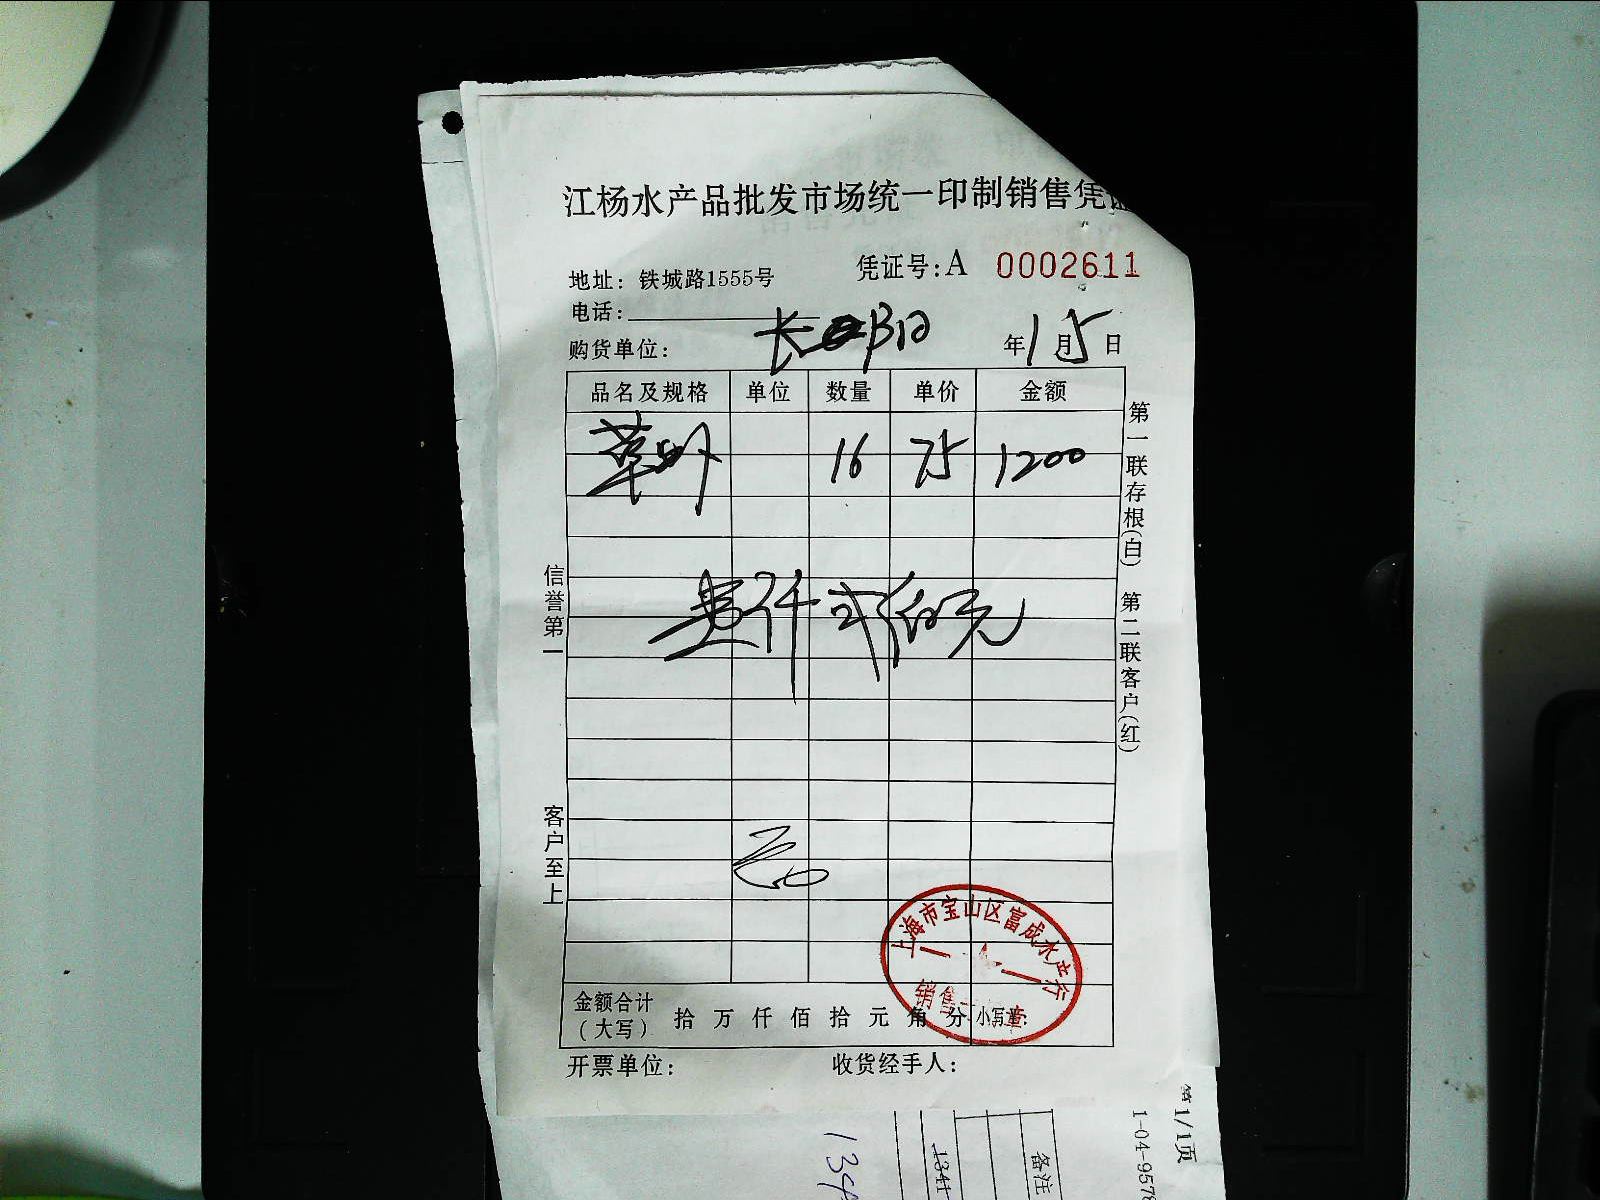 江杨水产品批发市场统一印制销售凭证
凭证号:A 0002611
地址: 铁城路1555号
电话:
购货单位: 长 阳 年1月5日
品名及规格 单位 数量 单价 金额
草虾 16 75 1200
壹仟贰佰元
信誉第一
客户至上
第一联存根(白) 第二联客户(红)
上海市宝山区富成水产行
销售 章
金额合计
(大写) 拾 万 仟 佰 拾 元 角 分 小写
开票单位: 收货经手人:
第1/1页
1-04-957
备注
1341
134